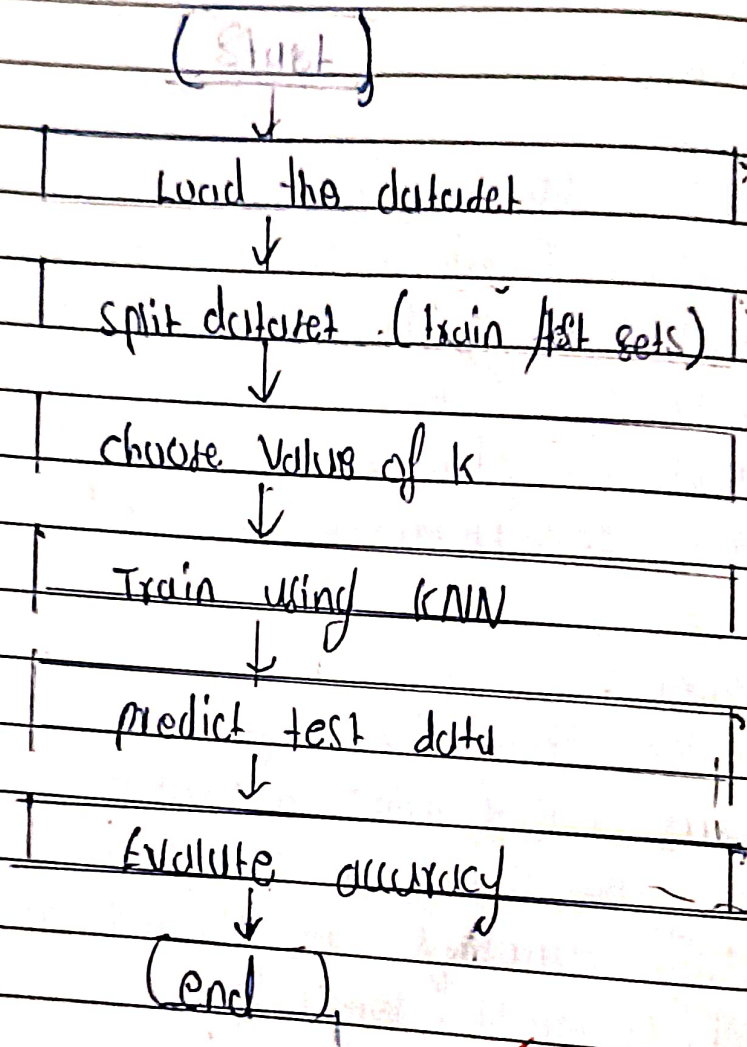 Start
Load the datadet
split dataset . (train / test sets)
choose value of k
Train using KNN
predict test data
Evalute accuracy
end